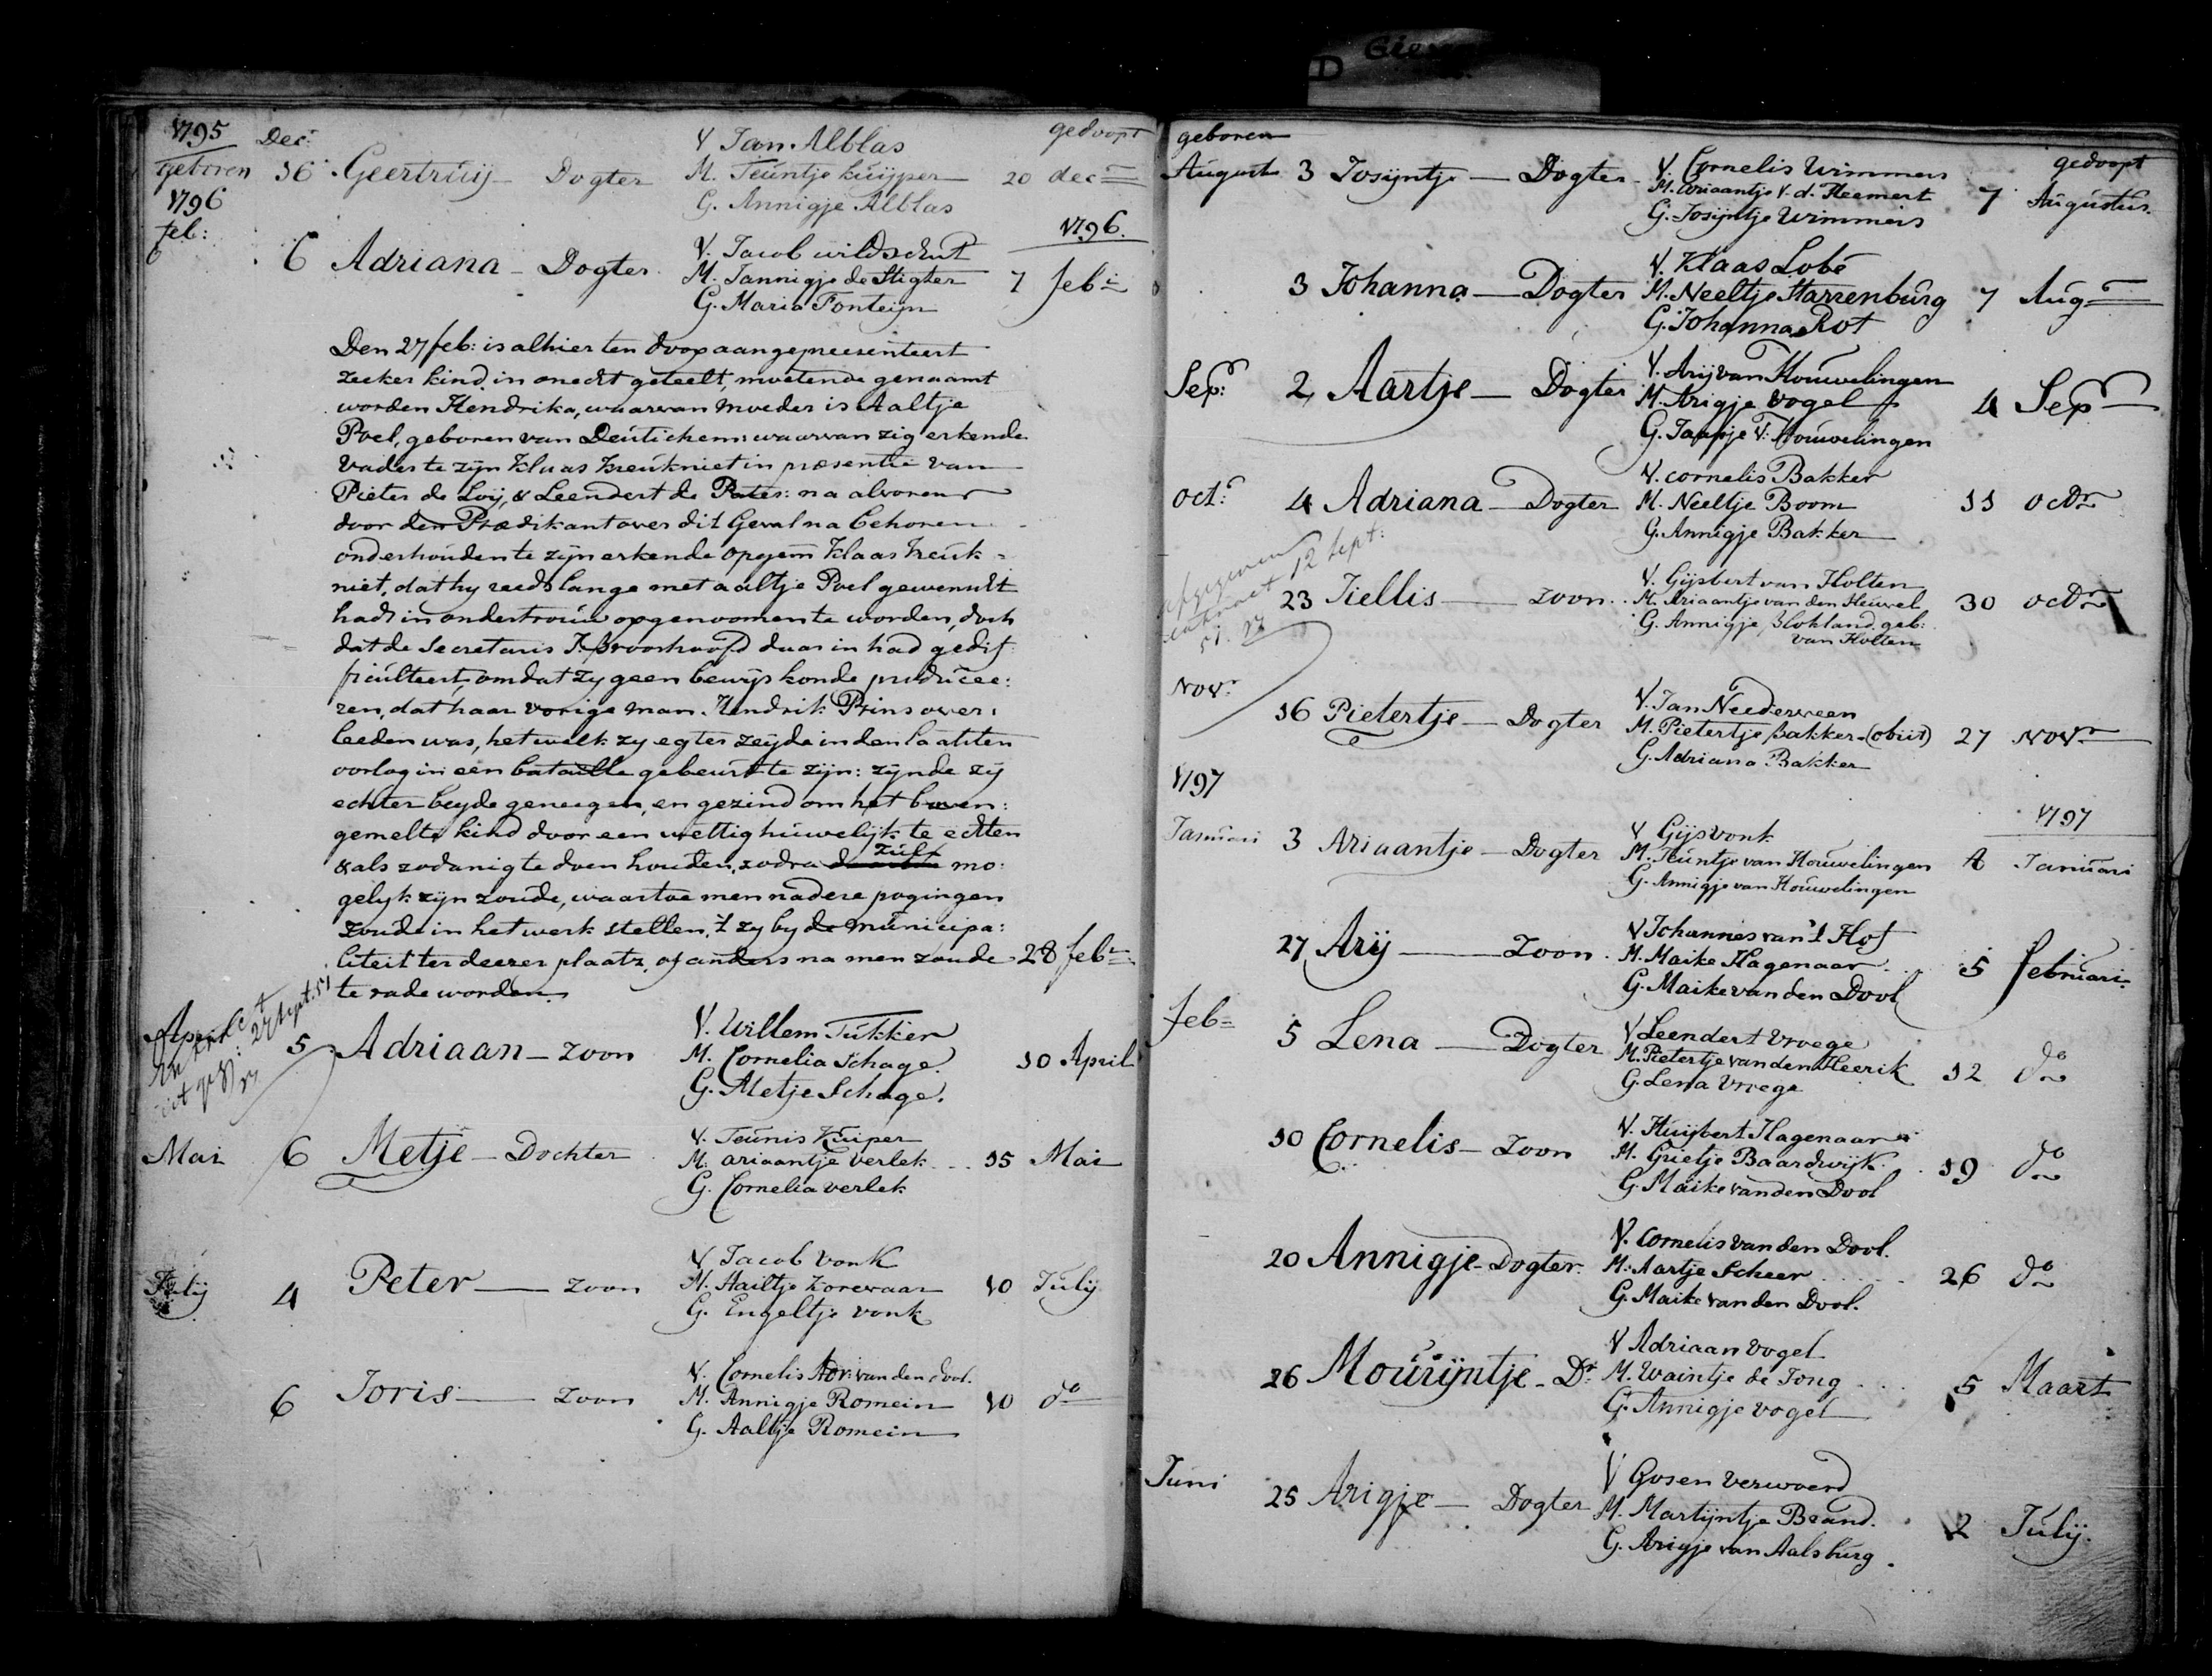 1795 Dec: gedoopt
V Jan Alblas
geboren 16 Geertruij Dogter M. Teuntje kuijper 20 dec
G. Annigje Alblas
1796 1796.
feb:
V. Jacob wildschut
6 Adriana Dogter M. Jannigje de Stigter 7 feb
G. Maria Fonteijn
Den 27 feb: is alhier ten doop aangepresenteert
zeeker kind in onecht geteelt, moetende genaamt
worden Hendrika, waarvan moeder is Aaltje
Poel, geboren van Deutichem: waarvan zig erkende
Vader te zijn Klaas Kreukniet in præsentie van
Pieter de Loij, & Leendert de Pater: na alvorens
door den Prædikant over dit Geval na behoren
onderhouden te zijn erkende opgem Klaas Kreuk=
niet, dat hy reeds lange met aaltje Poel gewenscht
hadt in ondertrouw opgenoomen te worden, doch
dat de Secretaris J. Broorshoofd daar in had gedif=
ficulteert, omdat zy geen bewijs konde producee:
ren, dat haar vorige man Hendrik Prins over:
leeden was, het welk zy egter zeyde in den laatsten
oorlog in een bataille gebeurt te zijn: zijnde zij
echter beyde geneegen, en gezind om het boven:
gemelte kind door een wettig huwelijk te echten
& als zodanig te doen houden, zodra zulx mo:
gelyk zijn zoude, waartoe men nadere pogingen
zoude in het werk stellen, 't zy by de municipa:
liteit ter deezer plaatz, of anders na men zoude 28 feb
te rade worden.
April
V. Willem Tukker
5 Adriaan zoon M. Cornelia Schage. 10 April
G. Metje Schage.
V. Teunis Kuiper
Mai 6 Metje Dochter M. ariaantje verlek 15 Mai
G. Cornelia verlek
V Jacob vonk
July 4 Peter zoon M. Hailtje Zorevaar 10 July
G. Engeltje vonk
V. Cornelis Adr: van den dool.
6 Joris zoon M. Annigje Romein 10 do
G. Aaltje Romein
geboren gedoopt
V. Cornelis Wimmers
August 3 Josijntje Dogter M. Ariaantje v. d. Heemert 7 Augustus.
G. Josijntje Wimmers
V. Klaas Lobé
3 Johanna Dogter M. Neeltje Starrenburg 7 Aug
G. Johanna Rot
V. Arij van Houwelingen
Sep: 2 Aartje Dogter M. Arigje vogel 4 Sep
G. Jaapje V: Houwelingen
V. cornelis Bakker
Oct: 4 Adriana Dogter M. Neeltje Boom 11 octr
G. Annigje Bakker
afgegeven
extract 12 Sept:
51.
V. Gijsbert van Holten
23 Jiellis zoon M. Ariaantje van den Heuvel 30 octr
G. Annigje Blokland. geb:
van Holten
Novr
V. Jan Neederveen
16 Pietertje Dogter M. Pietertje Bakker (obiit) 27 Novr
G. Adriana Bakker
1797 1797
V Gijs vonk
Januari 3 Ariaantje Dogter M. Teuntje van Houwelingen Januari
G. Annigje van Houwelingen
V Johannes van 't Hof
27 Arij zoon M. Maike Hagenaar 5 februari
G. Maike van den Dool
feb
V Leendert Vroege
5 Lena Dogter M. Pietertje van den Heerik 12 do
G. Lena Vroege
V. Huijbert Hagenaar
10 Cornelis zoon M. Grietje Baardwijk 19 do
G. Maike van den Dool
V. Cornelis van den Dool.
20 Annigje Dogter M. Aartje Scheer 26 do
G. Maike van den Dool.
V Adriaan vogel
26 Mourijntje Dr M. Waintje de Jong 5 Maart
G. Annigje vogel
Juni
V Gosen Verwoerd
25 Arigje Dogter M. Martijntje Brand. 2 July.
G. Arigje van Aalsburg.